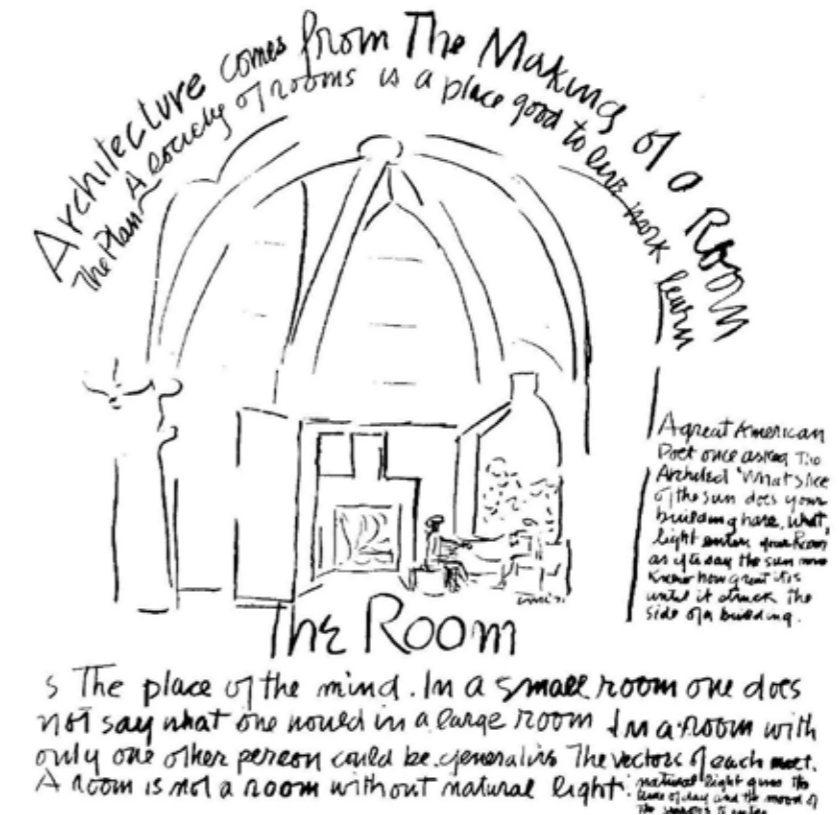 Architecture comes from The Making of a Room
The Plan A society of rooms is a place good to live work learn
A great American
Poet once asked The
Architect 'What slice
of the sun does your
building have, what
light enters your Room
as if to say the sun never
knew how great it is
until it struck the
side of a building.
The Room
s The place of the mind. In a small room one does
not say what one would in a large room In a room with
only one other person could be generative The vectors of each meet.
A room is not a room without natural light.
natural light gives the
time of day and the mood of
the seasons to enter